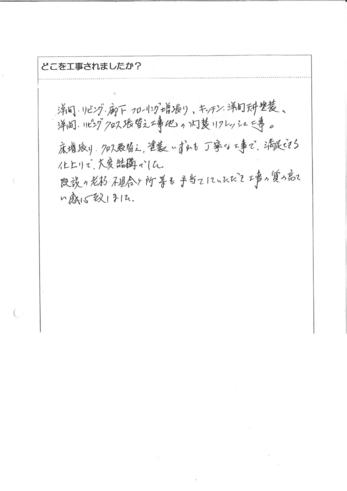 どこを工事されましたか？
洋間・リビング・廊下 フローリング増張り、キッチン 洋間 塗装、
洋間・リビング クロス張替え工事 他 内装リフレッシュ工事。
床増張り、クロス張替え、塗装 いずれも 丁寧な工事で、満足できる
仕上りで、大変 でした
既設の老朽 不具合ヶ所等も 手当てしていただき 工事の質の高
い 感 致しました